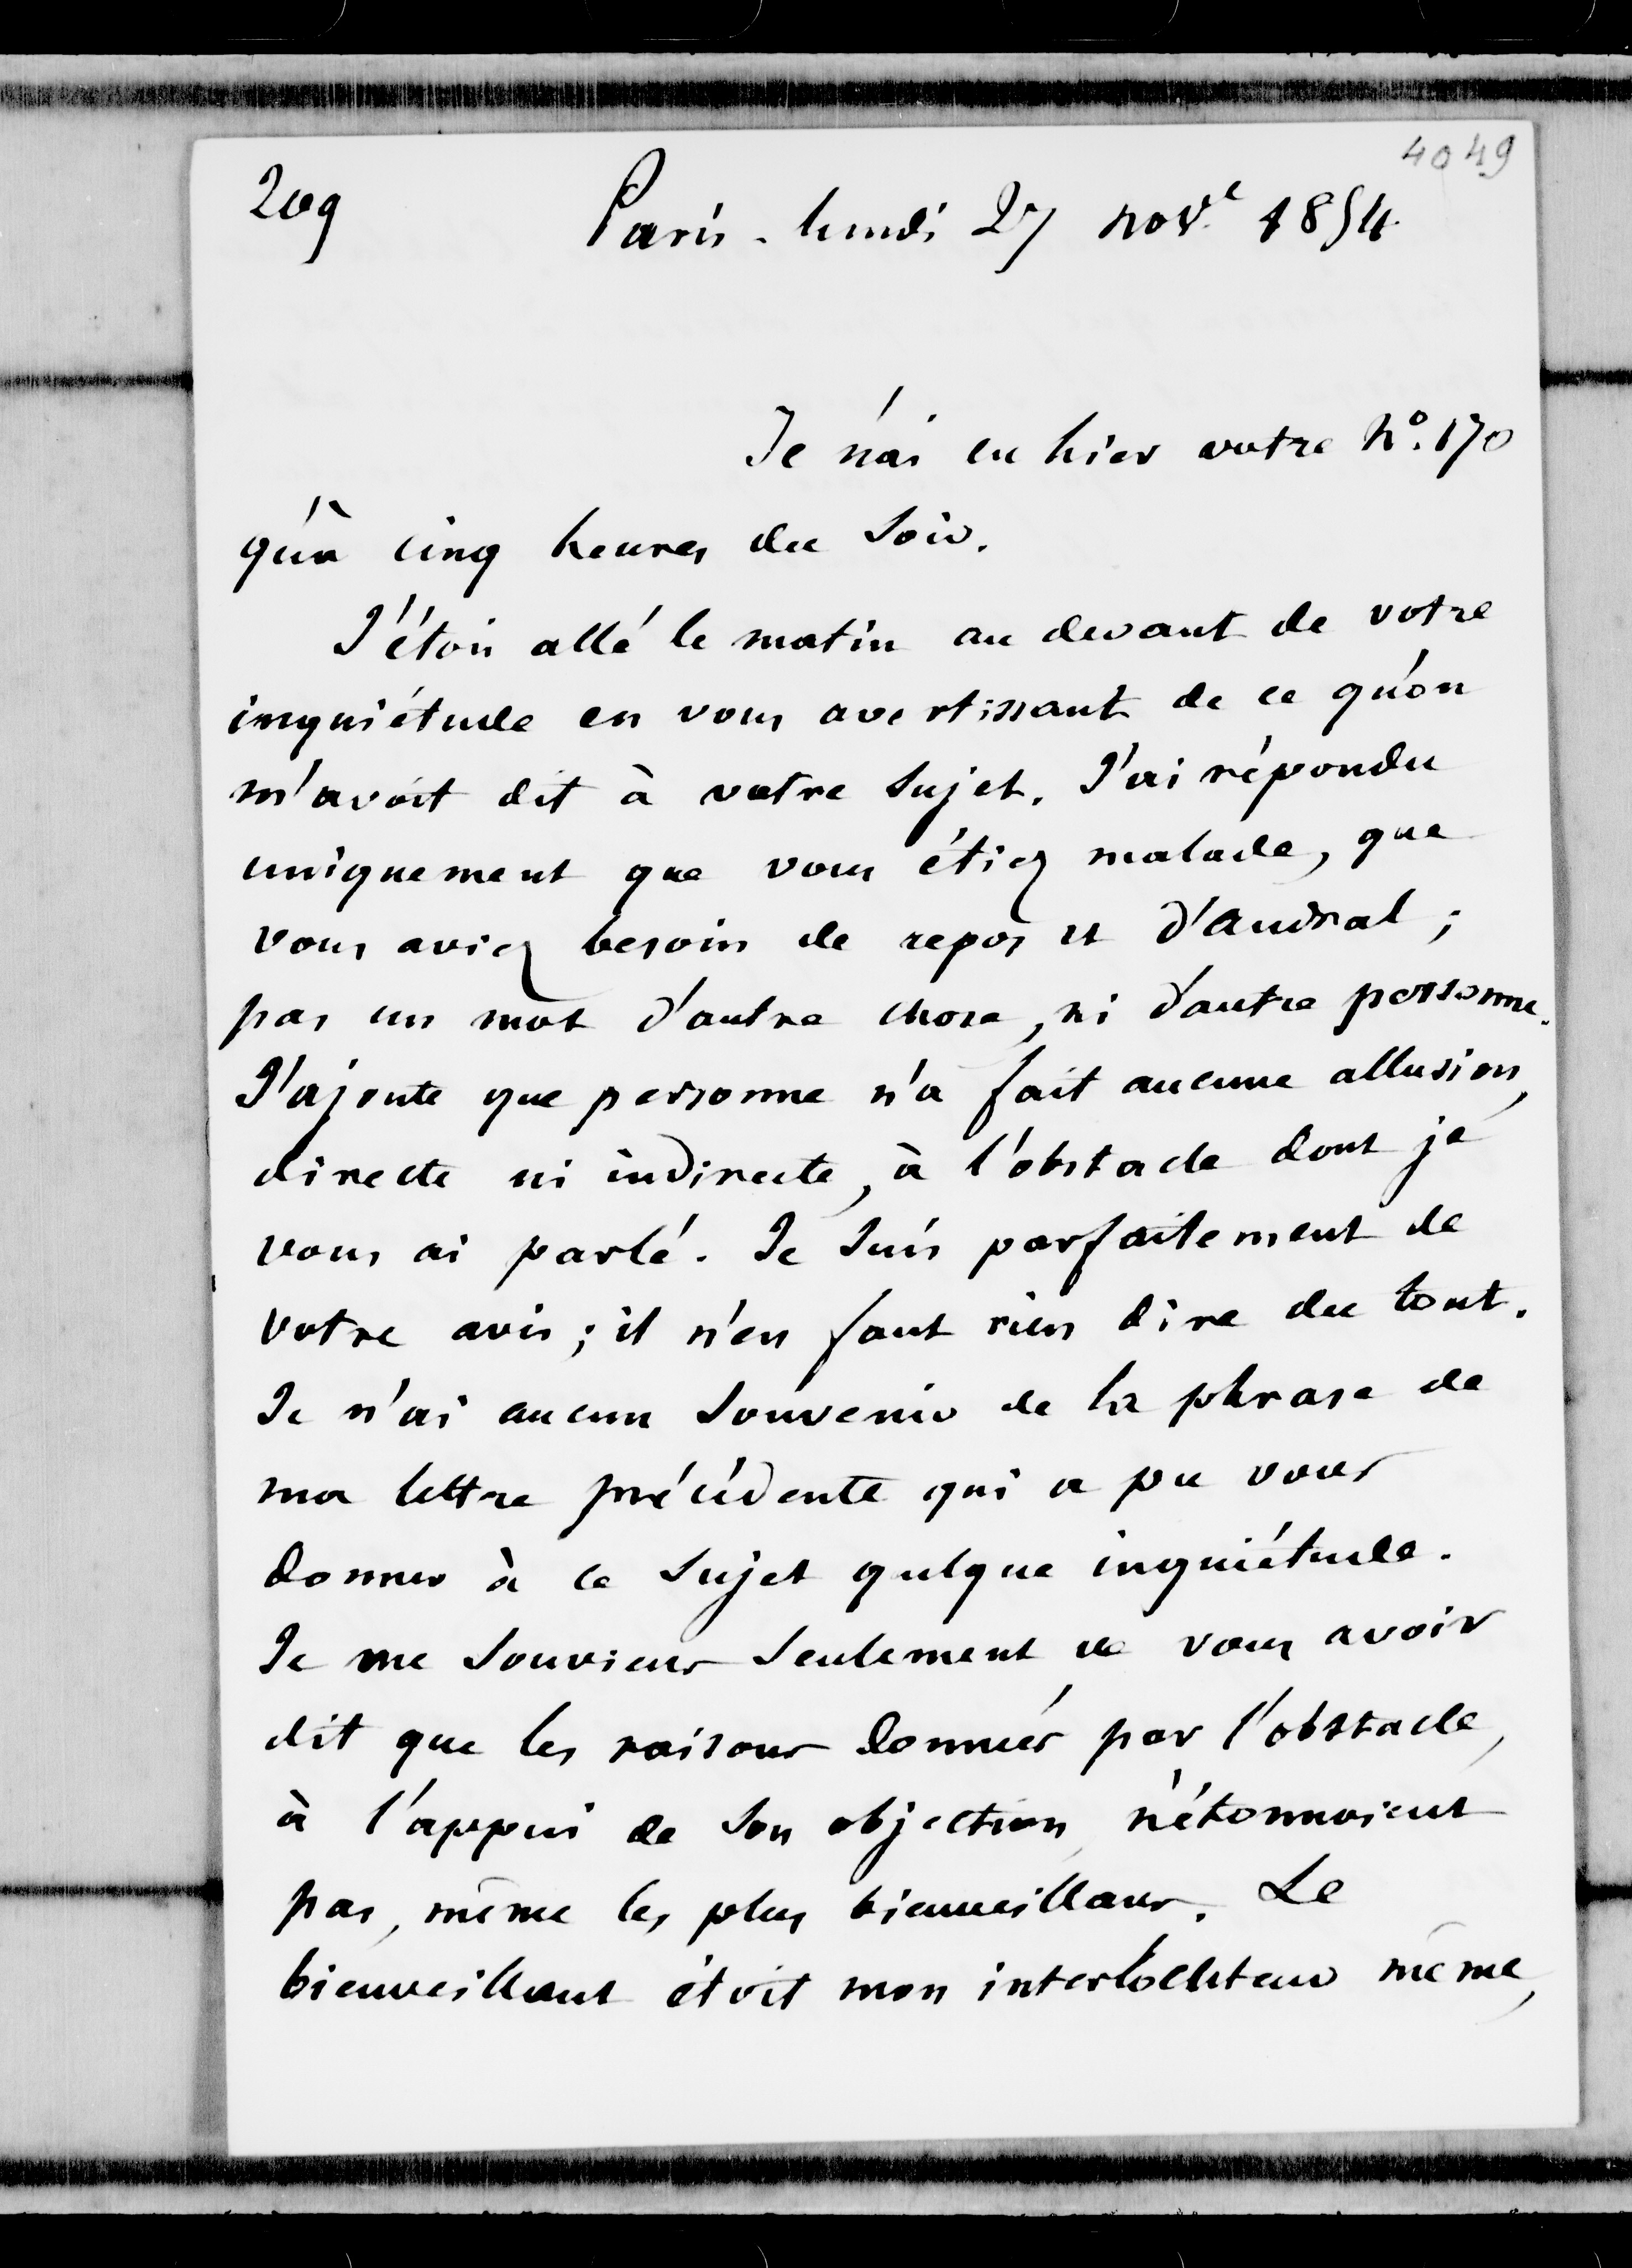 4049
209
Paris - lundi 27 nov.e 1854.
Je n'ai eu hier votre No. 170
qu'à cinq heures du soir.
J'étois allé le matin au devant de votre
inquiétude en vous avertissant de ce qu'on
m'avoit dit à votre sujet. J'ai répondu
uniquement que vous étiez malade, que
vous aviez besoin de repos et d'Andral ;
pas un mot d'autre chose, ni d'autre personne.
J'ajoute que personne n'a fait aucune allusion,
directe ni indirecte, à l'obstacle dont je
vous ai parlé. Je suis parfaitement de
votre avis ; il n'en faut rien dire du tout.
Je n'ai aucun souvenir de la phrase de
ma lettre précédente qui a pu vous
donner à ce sujet quelque inquiétude.
Je me souviens seulement de vous avoir
dit que les raisons données par l'obstacle,
à l'appui de son objection, n'étonnoient
pas, même les plus bienveillans. Le
bienveillant étoit mon interlocuteur même,